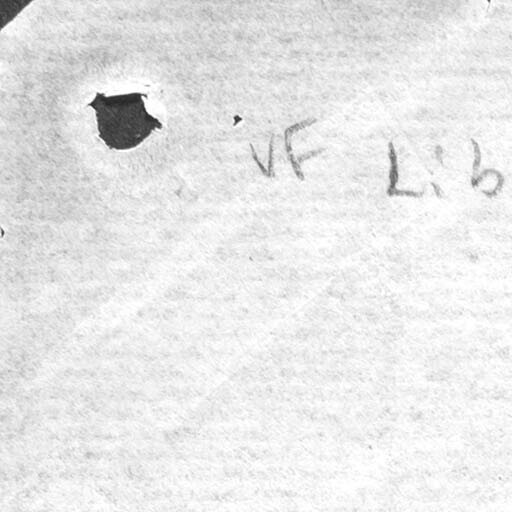 VF Lib